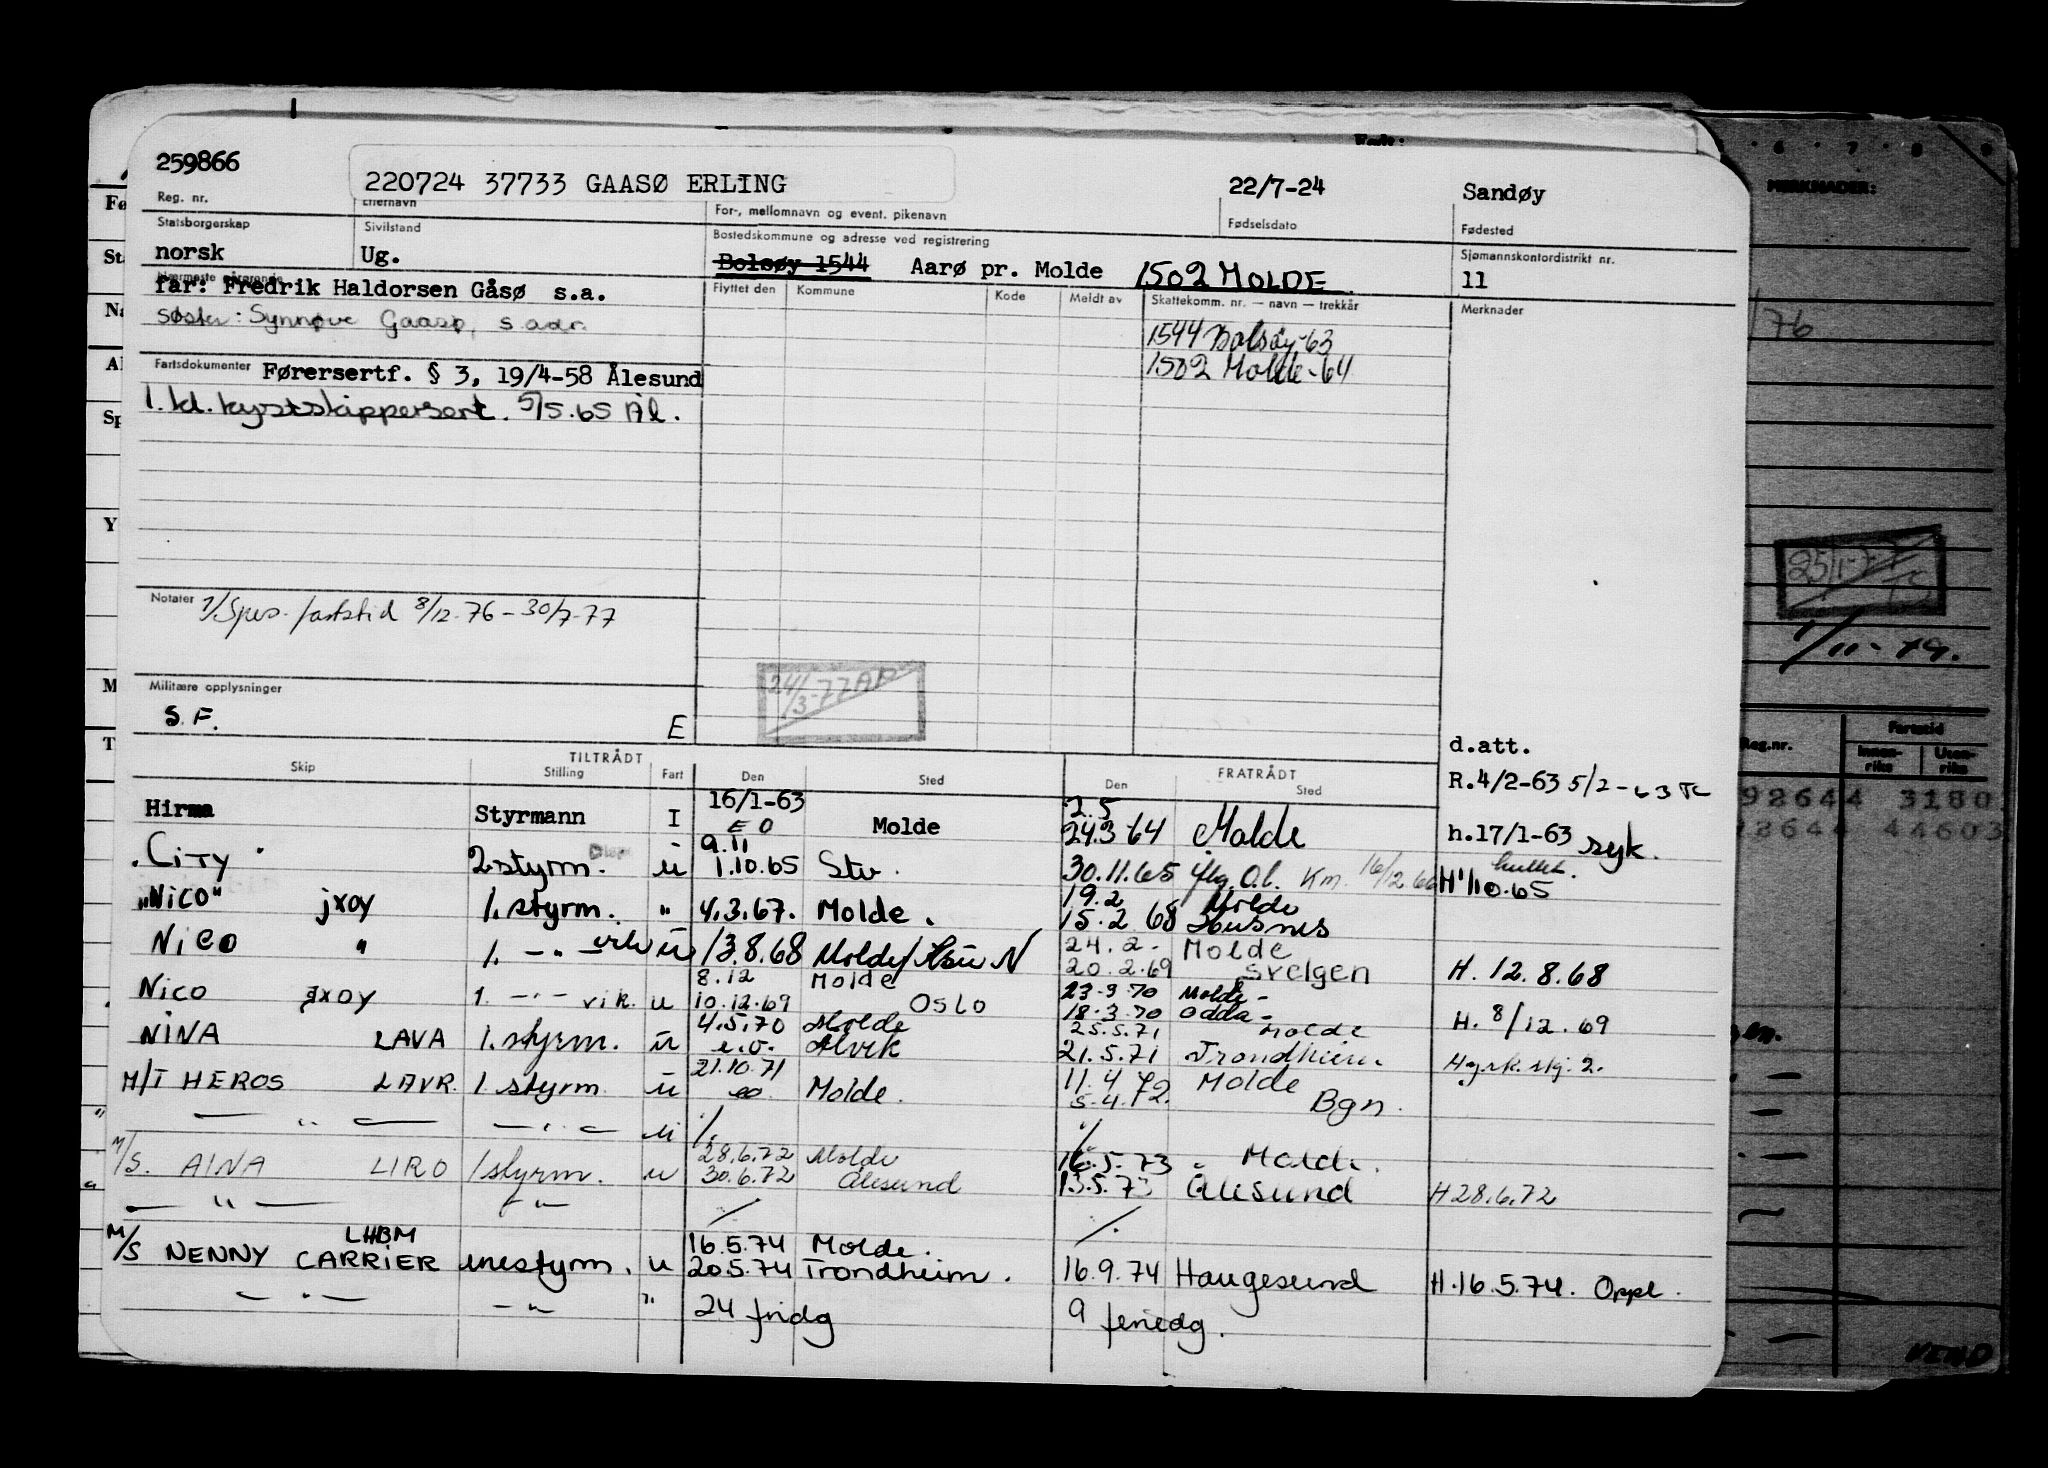 259866
220724 37733 GAASØ ERLING 22/7-24 Sandøy
Reg. nr. Etternavn For-, mellomnavn og event. pikenavn Fødselsdato Fødested
Statsborgerskap Sivilstand Bostedskommune og adresse ved registrering Sjømannskontordistrikt nr.
norsk Ug. Bolsøy 1544 Aarø pr. Molde 1502 MOLDE 11
Nærmeste pårørende Flyttet den Kommune Kode Meldt av Skattekomm. nr. — navn — trekkår Merknader
far: Fredrik Haldorsen Gåsø s.a.
søster: Synnøve Gaasø, s adr. 1544 Bolsøy-63
Fartsdokumenter Førersertf. § 3, 19/4-58 Ålesund 1502 Molde-64
1. kl. kystskippersert. 5/5.65 Ål.
Notater 1/Spes. fartstid 8/12-76-30/7-77
Militære opplysninger 24/3-77
S.F. E
TILTRÅDT FRATRÅDT d.att.
Skip Stilling Fart Den Sted Den Sted R.4/2-63 5/2-63
Hirma Styrmann I 16/1-63 EO Molde 2.5 24.3-64 Molde h.17/1-63 syk.
"CITY" 2 styrm. u 9.11 1.10.65 Stv. 30.11.65 16/12 H 1/10.65
"NICO" jxoy 1. styrm. " 4.3.67. Molde. 19.2 15.2 68 Molde Husnes
NICO " 1. -"- vik u 13.8.68 Molde/ 24.2- 20.2.69 Molde Svelgen H. 12.8.68
NICO JXOY 1. -"- vik. u 8.12 10.12.69 Molde Oslo 23.3.70 18.3.70 Molde- Odda- H. 8/12.69
NINA LAVA 1. styrm. u 4.5.70 e.o. Molde Alvik 25.5.71 21.5.71 Molde Trondheim.
M/T HEROS LAVR. 1 styrm u 21.10.71 eo Molde. 11.4 72 5.4.72. Molde Bgn.
— " — — " — u /. /.
M/S. AINA LIRO 1 styrm. u 28.6.72 30.6.72 Molde Ålesund 16.5.73 13.5.73 Molde. Ålesund H 28.6.72
— " — — " — / /.
M/S NENNY CARRIER LHBM enestyrm. u 16.5.74 20.5.74 Molde. Trondheim. 16.9.74 Haugesund H.16.5.74. Oppl.
— " — — " — " 24 fridg 9 feriedg.
MERKNADER:
/76
1/11-79.
Reg.nr. Fartstid
Innen-riks Uten-riks
92644 3180
92644 44603
VEND